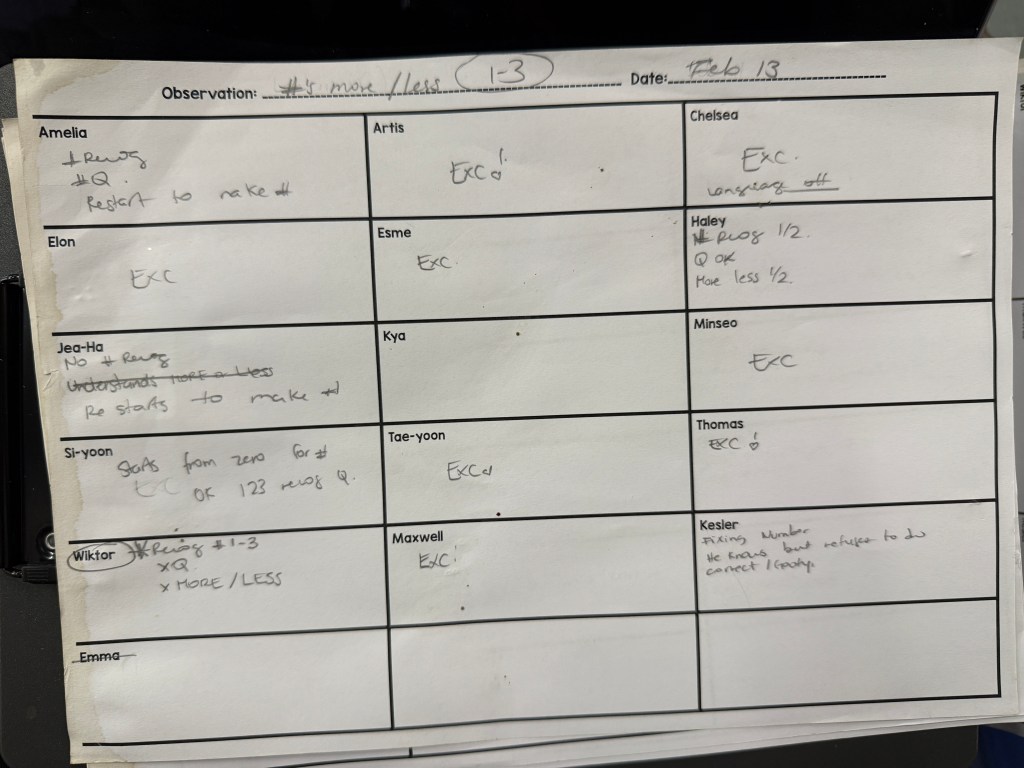 Observation: #'s more /less 1-3 Date: Feb 13
Amelia
# Recog
# Q
Restart to make #
Artis
EXC!
Chelsea
EXC.
Language off
Elon
EXC
Esme
EXC.
Haley
# Recog 1/2.
Q OK
More less 1/2.
Jea-Ha
No # Recog
Understands MORE or Less
Re starts to make #
Kya
Minseo
EXC
Si-yoon
Starts from zero for #
EXC OK 123 recog Q.
Tae-yoon
EXC
Thomas
EXC!
Wiktor Recog # 1-3
x Q
x MORE / LESS
Maxwell
EXC!
Kesler
Fixing Number
He knows but refuses to do
correct /
Emma